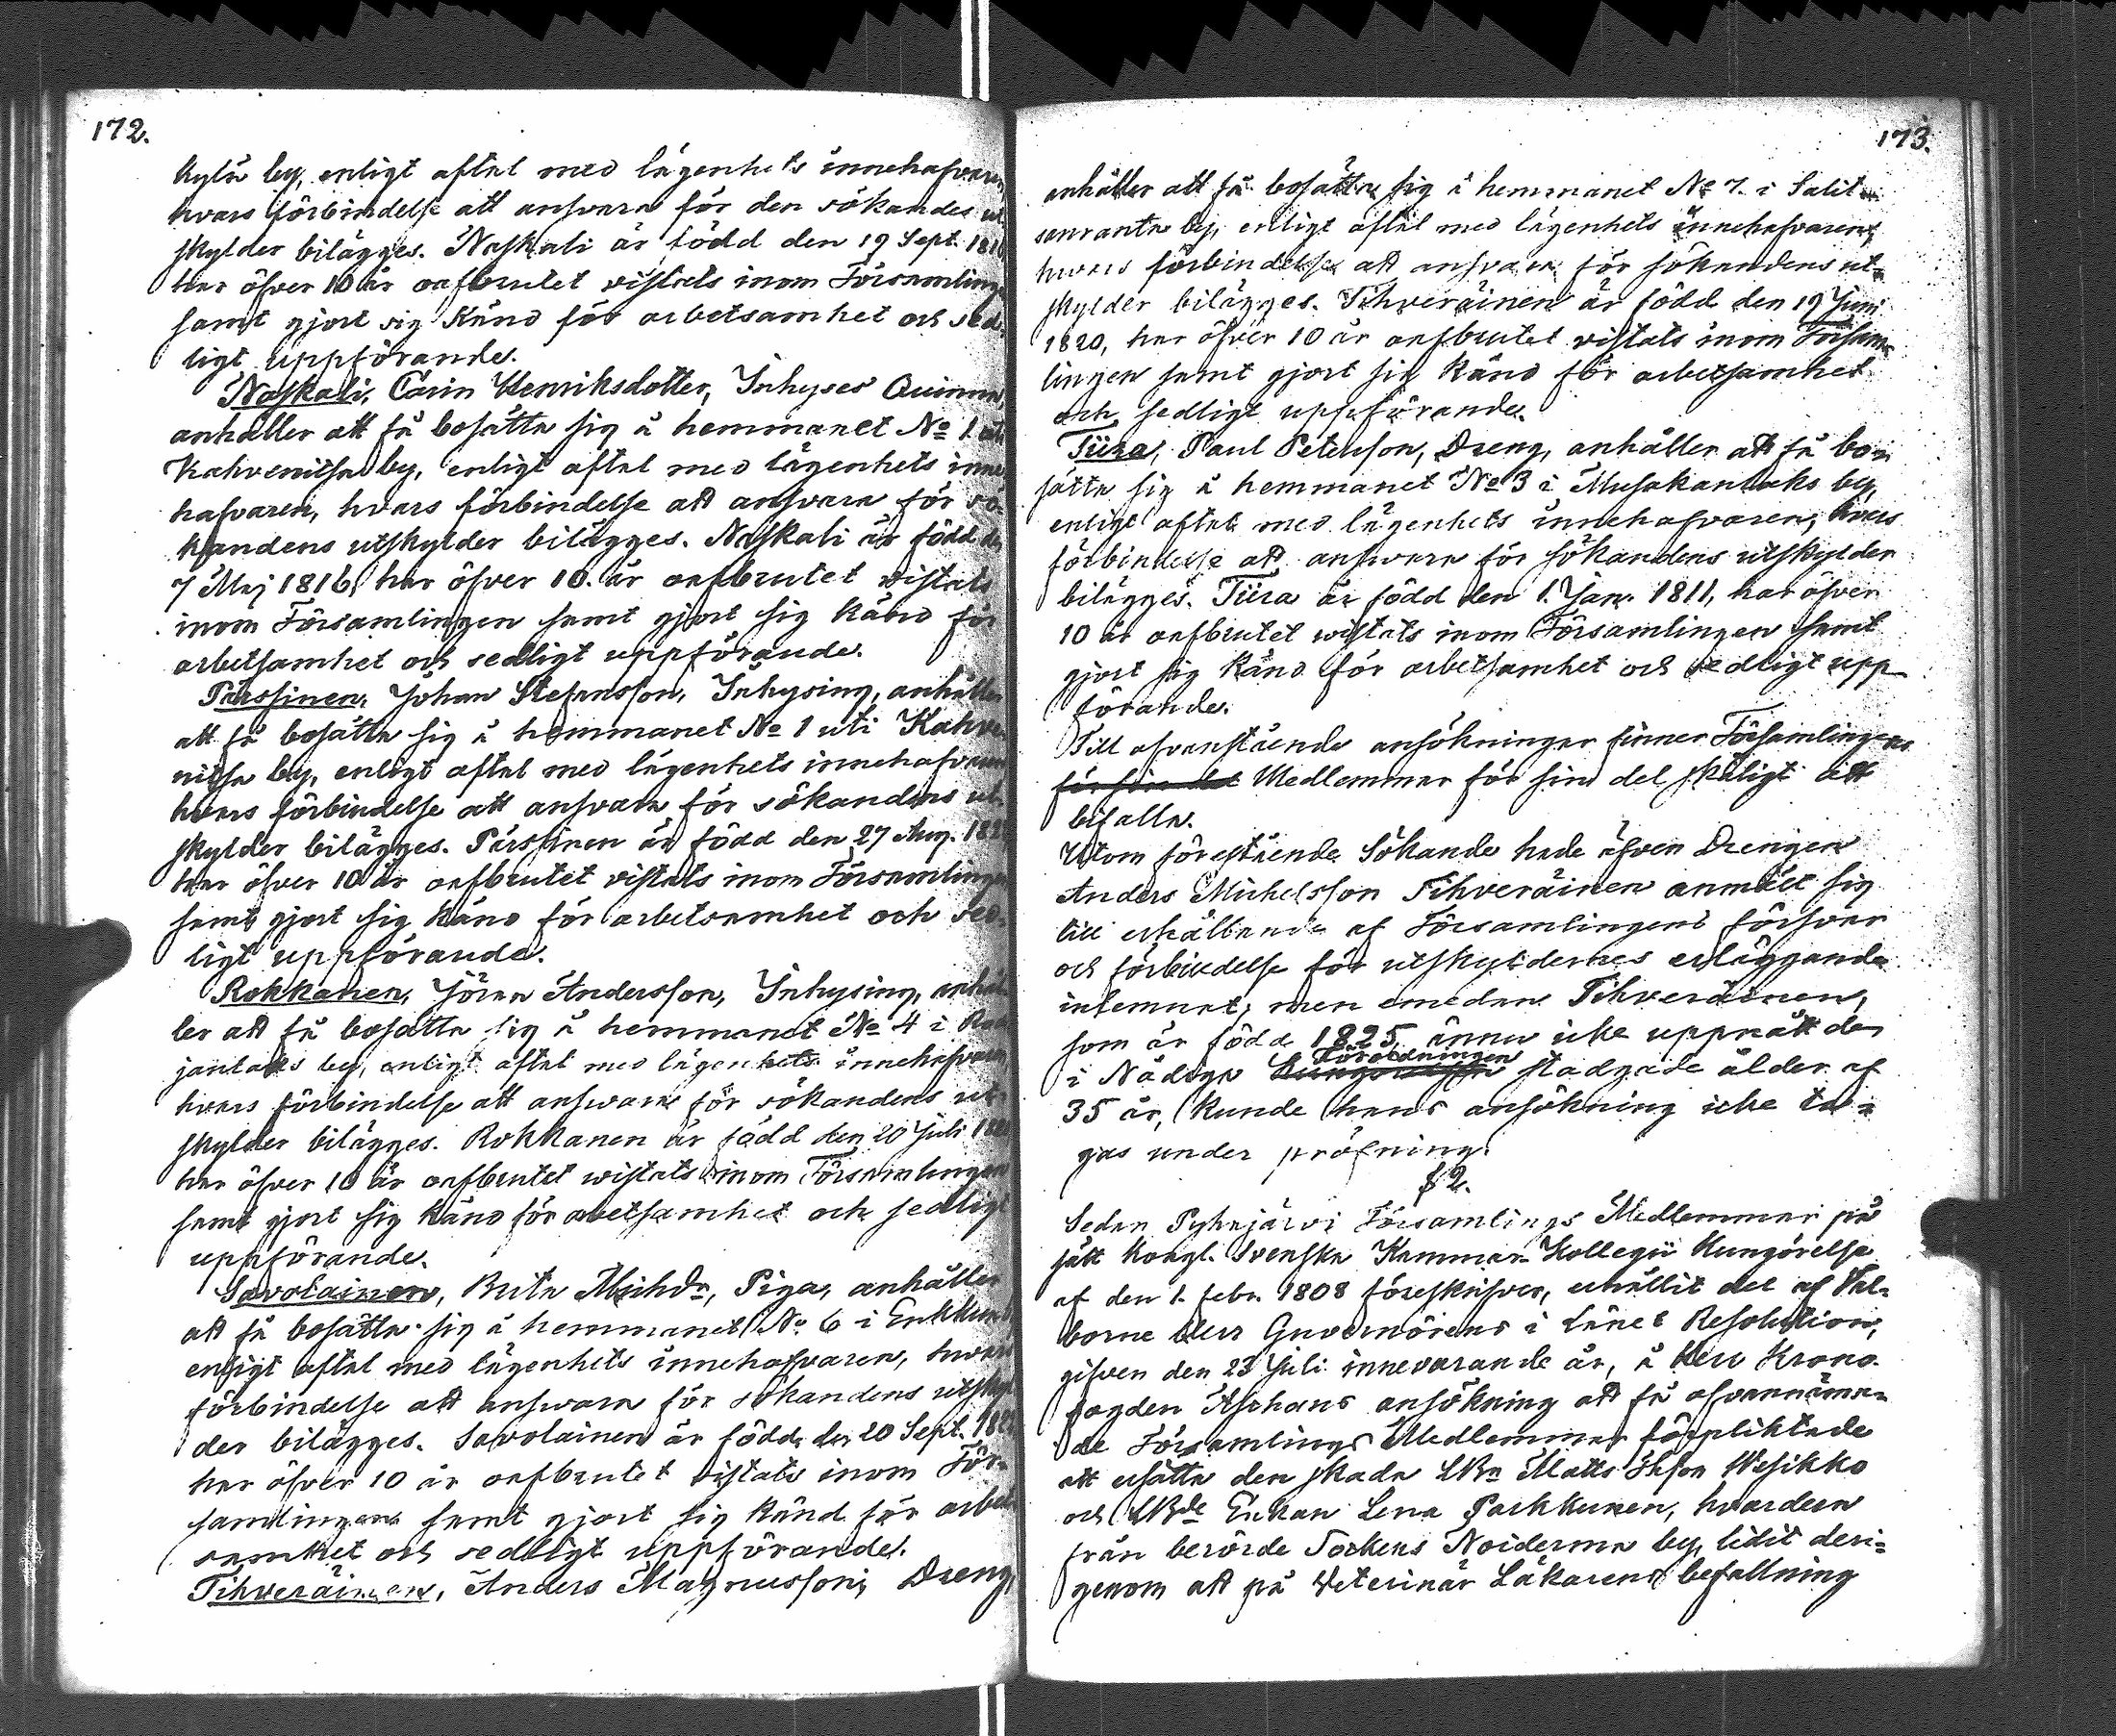 172.
kylä by, enligt aftal med lägenhets innehafvaren,
hvars förbindelse att ansvara för den sökandes ut
skylder bilägges. Naskali är född den 19 Sept. 1816
har öfver 10 år oafbrutet vistats inom Församlinge
samt gjort sig känd för arbetsamhet och sed-
ligt uppförande.
Naskali, Carin Henriksdotter, Inhyses Quinna,
anhåller att få bosätta sig å hemmanet No 1 uti
Kahvenitsa by, enligt aftal med lägenhets inne-
hafvaren, hvars förbindelse att ansvara för sö-
kandens utskylder bilägges. Naskali är född den
7 Maj 1816, har öfver 10. år oafbrutet vistats
inom Församlingen samt gjort sig känd för
arbetsamhet och sedligt uppförande.
Pärssinen, Johan Stefansson, Inhysing, anhåller
att få bosätta sig å hemmanet No 1 uti Kahve-
nitsa by, enligt aftal med lägenhets innehafvaren
hvars förbindelse att ansvara för sökandens ut-
skylder bilägges. Pärssinen är född den 27 Aug.
har öfver 10 år oafbrutet vistats inom Församlingen
samt gjort sig känd för arbetsamhet och sed-
ligt uppförande.
Rokkanen, Jöran Andersson, Inhysing, anhål-
ler att få bosätta sig å hemmanet No 4 i
jantaks by, enligt aftal med lägenhets innehafvaren,
hvars förbindelse att ansvara för sökandens ut-
skylder bilägges. Rokkanen är född den 20 Juli
har öfver 10 år oafbrutet wistats inom Församlingen
samt gjort sig känd för arbetsamhet och sedligt
uppförande.
Savolainen, Brita Michdr, Piga, anhåller
att få bosätta sig å hemmanet No 6 i
enligt aftal med lägenhets innehafvaren, hvars
förbindelse att ansvara för sökandens utskyl
der bilägges. Savolainen är född den 20 Sept.
har öfver 10 år oafbrutet vistats inom För-
samlingen samt gjort sig känd för arbet
samhet och sedligt uppförande.
Tihveräinen, Anders Magnusson, Dreng,
173.
anhåller att få bosätta sig å hemmanet No 7. i Salit-
sanranta by, enligt aftal med lägenhets innehafvaren,
hvars förbindelse att ansvara för sökandens ut-
skylder bilägges. Tihveräinen är född den 19 Juni
1820, har öfver 10 år oafbrutet vistats inom Försam-
lingen samt gjort sig känd för arbetsamhet
och sedligt uppförande.
Tiira, Paul Petersson, Dreng, anhåller att få bo-
sätta sig å hemmanet No 3 i Musakantaks by,
enligt aftal med lägenhets innehafvaren, hvars
förbindelse att ansvara för sökandens utskylder
bilägges. Tiira är född den 1. Jan. 1811, har öfver
10 år oafbrutet wistats inom Församlingen samt
gjort sig känd för arbetsamhet och sedligt upp-
förande.
Till ofvanstående ansökningar finner Församlingens
för sin del Medlemmar för sin del skäligt att
bifalla.
Utom förestående Sökande hade äfven Drengen
Anders Michelsson Tihveräinen anmält sig
till erhållande af Församlingens försvar
och förbindelse för utskyldernes erläggande
inlemnat, men emedan Tihveräinen,
som är född 1825, ännu icke uppnått den
i Nådiga Förordningen stadgade ålder af
35 år, kunde hans ansökning icke ta-
gas under pröfning.
§ 2.
Sedan Pyhäjärvi Församlings Medlemmar på
sätt Kongl. Svenska Kammar-Kollegii Kungörelse
af den 1. febr. 1808 föreskrifver, erhållit del af Väl-
borne Herr Guvernörens i Länet Resolution,
gifven den 23 Juli innevarande år, å Herr Krono-
fogden Aschans ansökning att få ofvannämn-
de Församlings Medlemmar förpliktade
att ersätta den skada LBn Matts Thsson Wesikko
och LBde Enkan Lena Parkkunen, hvardera
från berörde Sockens Noiderma by, lidit deri-
genom att på Veterinär Läkarens befallning